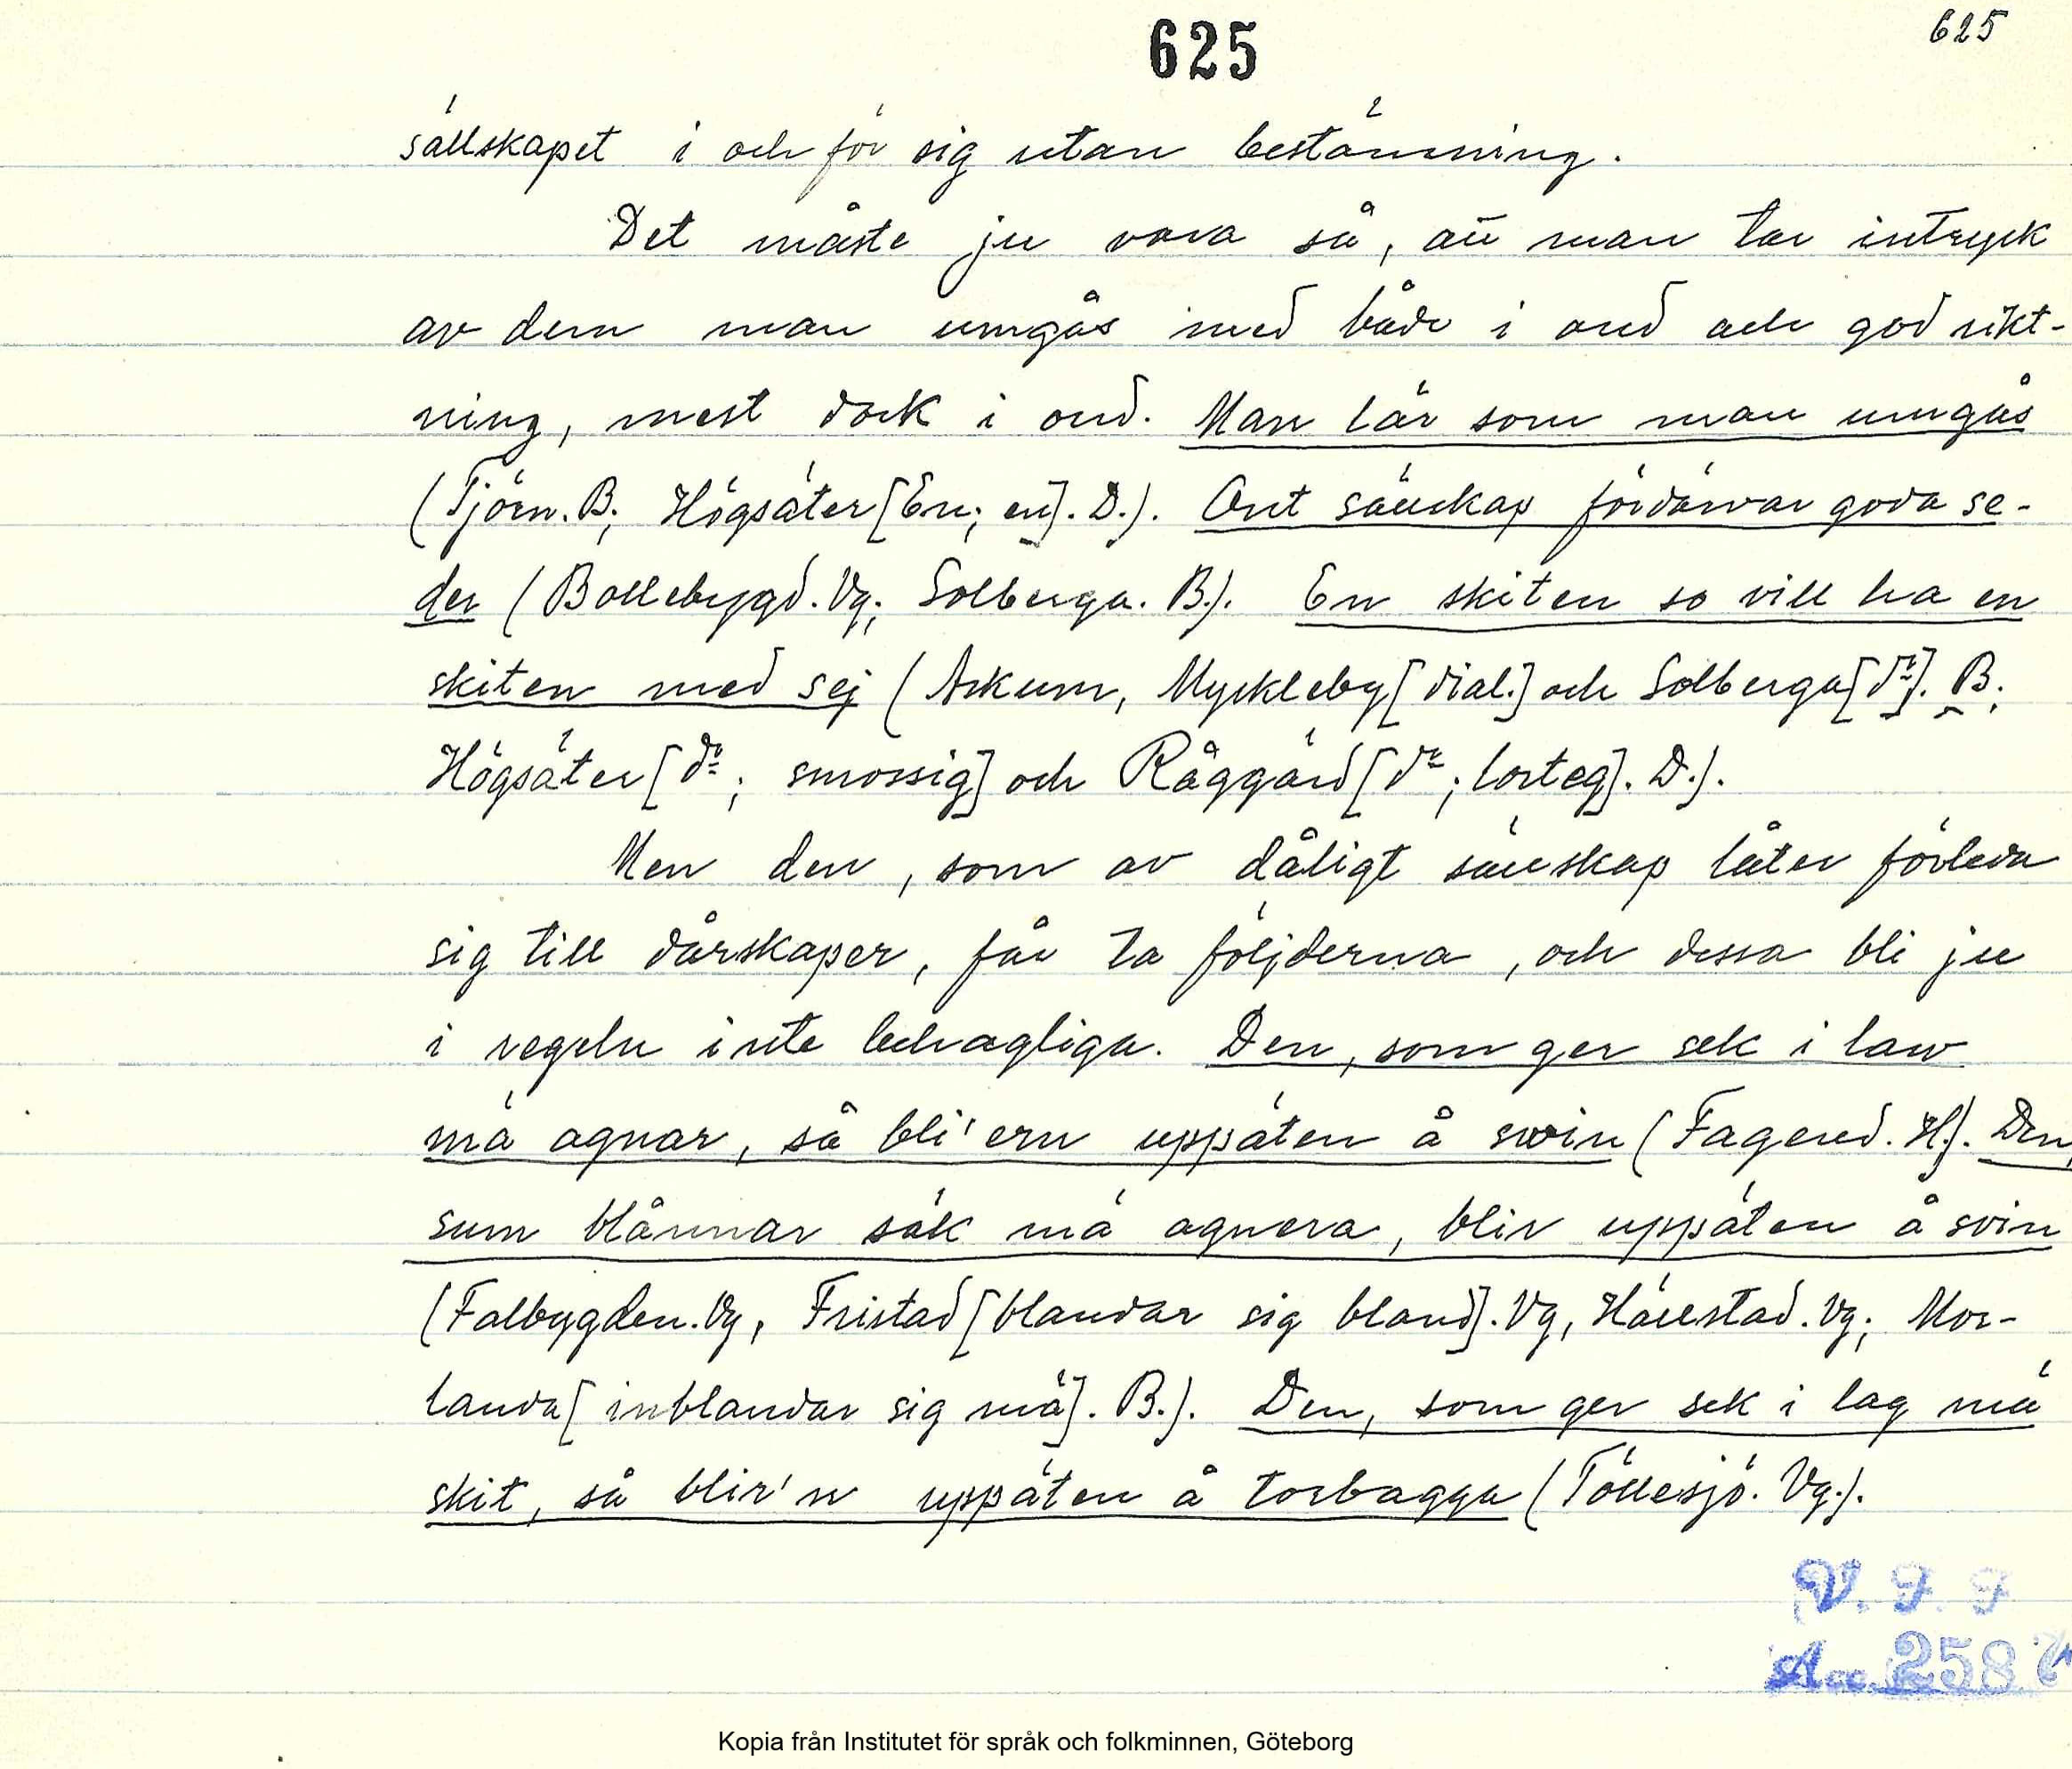 625
625
sällskapet i och för sig utan bestämning.
Det måste ju vara så, att man tar intryck
av dem man umgås med både i ond och god rikt-
ning, mest dock i ond. Man lär som man umgås
(Tjörn. B; Högsäter [En; en]. D.). Ont sällskap fördärvar goda se-
der (Bollebygd. Vg; Solberga. B.). En skiten so vill ha en
skiten med sej (Askum, Myckleby [dial.] och Solberga [do]. B;
Högsäter [do; smossig] och Råggärd [do; lorteg]. D.).
Men den, som av dåligt sällskap låter förleda
sig till dårskaper, får ta följderna, och dessa bli ju
i regeln inte behagliga. Den, som ger sek i law
mä agnar, så bli'ern uppäten å swin (Fagered. H). Den,
sum blånnar säk mä agnera, blir uppäten å svin
(Falbygden. Vg, Fristad [blandar sig bland]. Vg, Hällstad. Vg; Mor-
landa [inblandar sig mä]. B.). Den, som ger sek i lag mä
skit, så blir'n uppäten å torbagga (Töllesjö. Vg.).
V. F. F
Acc. 258
Kopia från Institutet för språk och folkminnen, Göteborg